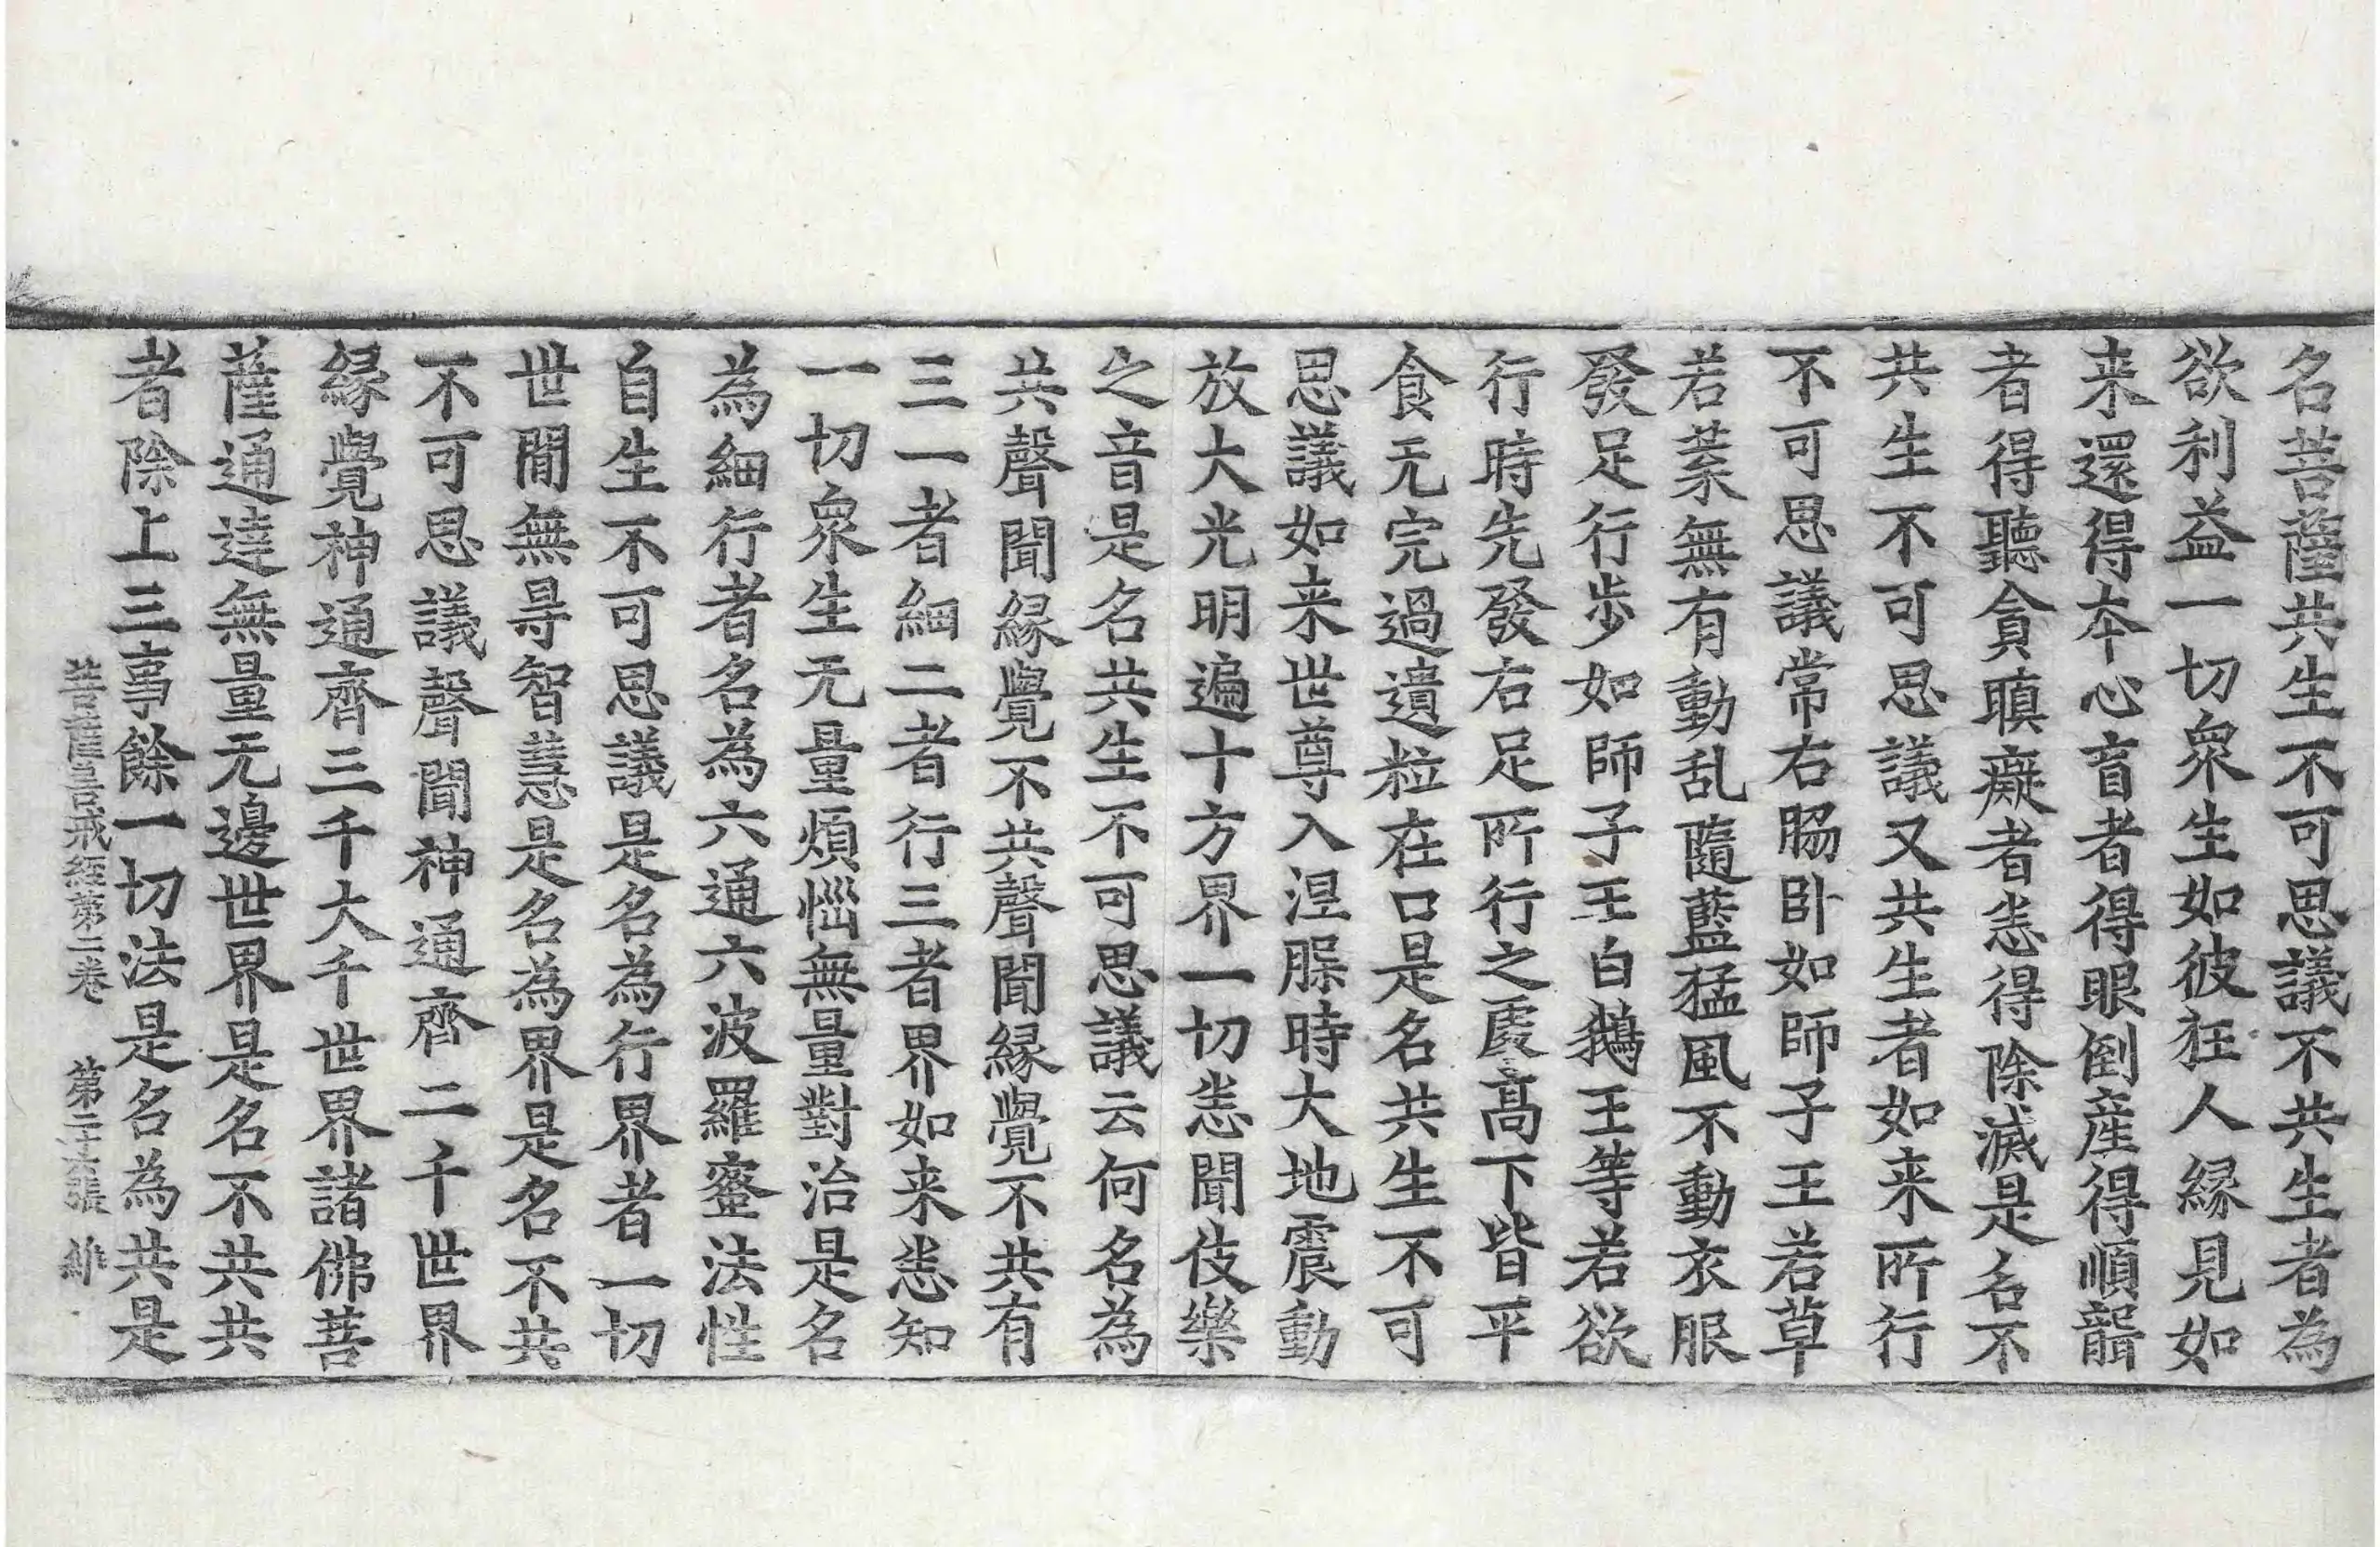 名菩薩共生不可思議不共生者為
欲利益一切衆生如彼狂人縁見如
来還得夲心盲者得眼倒産得順聾
者得聽貪瞋癡者恙得除滅是名不
共生不可思議又共生者如来所行
不可思議常右脇卧如師子王若草
若葉無有動乱隨藍猛風不動衣服
發足行步如師子王白鵝王等若欲
行時先發右足所行之處高下皆平
食无完過遺粒在口是名共生不可
思議如来世尊入涅槃時大地震動
放大光明遍十方界一切恙聞伎樂
之音是名共生不可思議云何名為
共聲聞縁覺不共聲聞縁覺不共有
三一者細二者行三者界如来恙知
一切衆生无量煩惱無量對治是名
為細行者名為六通六波羅蜜法性
自生不可思議是名為行界者一切
世間無㝵智慧是名為界是名不共
不可思議聲聞神通齊二千世界
縁覺神通齊三千大千世界諸佛菩
薩通達無量无邊世界是名不共共
者除上三事餘一切法是名為共是
菩薩善戒経第二卷 第二十六張 維